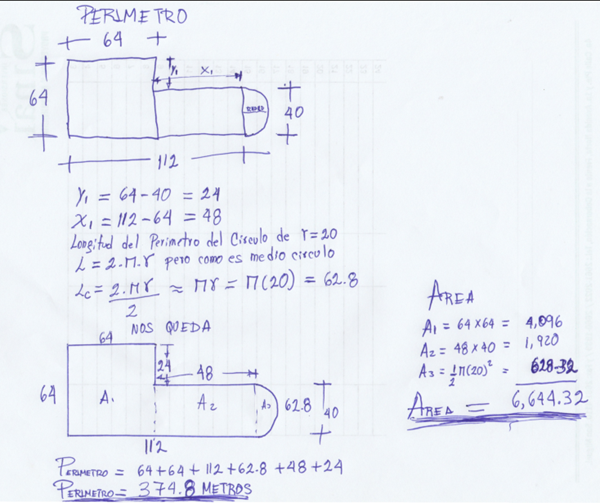 PERIMETRO
64
64
Y₁
X₁
40
112
Y₁ = 64-40 = 24
X₁ = 112-64 = 48
Longitud del Perimetro del Circulo de r=20
L = 2.π.r pero como es medio circulo
Lc = 2.πr/2 ≈ πr = π(20) = 62.8
NOS QUEDA
64
24
48
64
A₁
A₂
A₃
62.8
40
112
PERIMETRO = 64+64+112+62.8+48+24
PERIMETRO = 374.8 METROS
AREA
A₁ = 64x64 = 4,096
A₂ = 48x40 = 1,920
A₃ = ½π(20)² = 628.32
AREA = 6,644.32